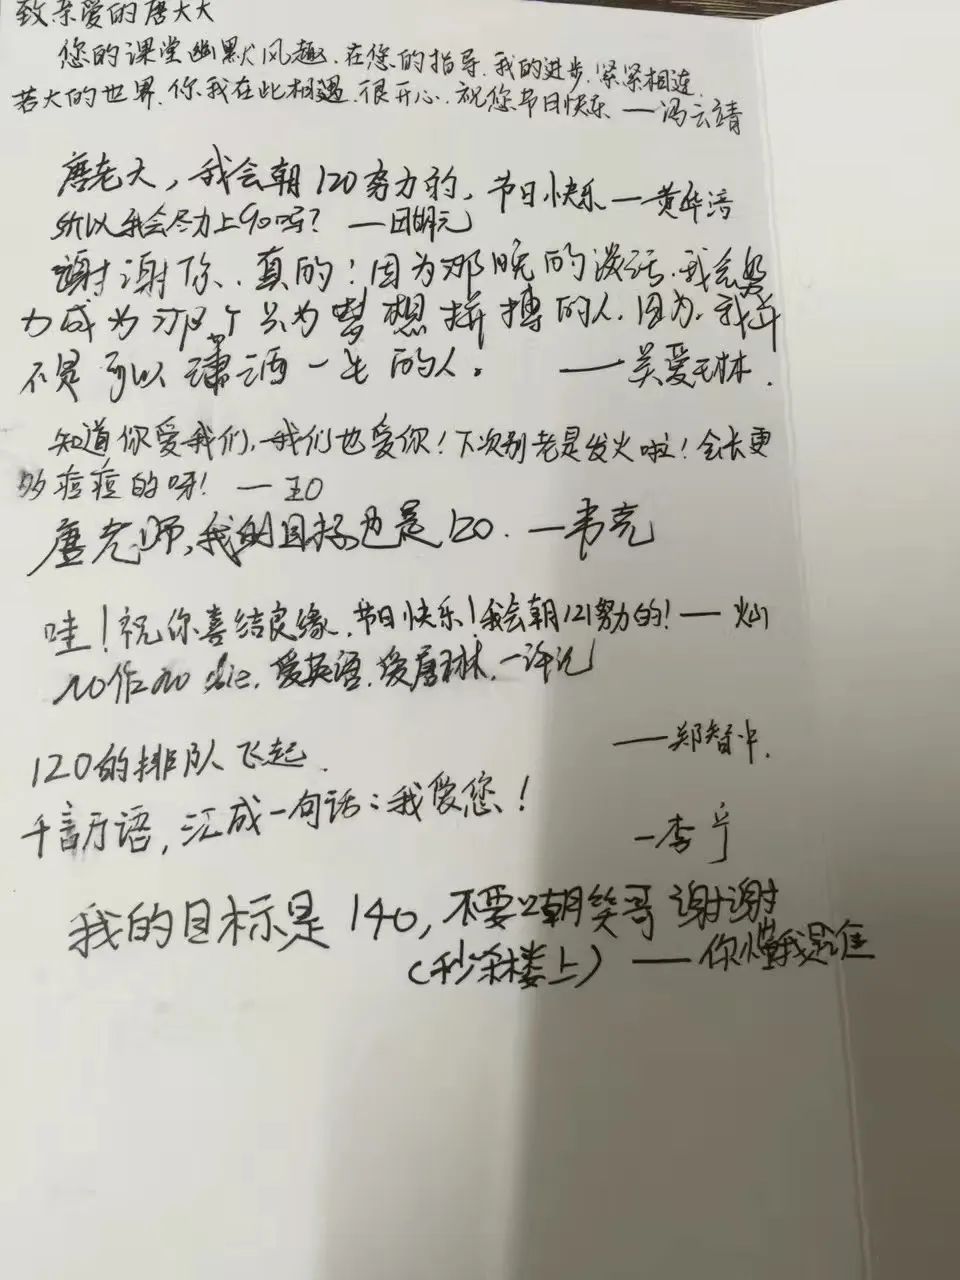 致亲爱的唐大大
您的课堂幽默风趣.在您的指导.我的进步.紧紧相连.
若大的世界.你我在此相遇.很开心.祝您节日快乐 —冯云靖
唐老大，我会朝120努力的，节日快乐 —黄
所以我会尽力上90吗？ —田
谢谢你、真的！因为那晚的谈话.我会努
力成为那个只为梦想拼搏的人.因为.我并
不是可以潇洒一生的人。 ——吴爱琳.
知道你爱我们，我们也爱你！下次别老是发火啦！会长更
多痘痘的呀！ —王O
唐老师，我的目标也是120. —韦亮
哇！祝你喜结良缘、节日快乐！我会朝121努力的！—灿
no作no die.爱英语.爱唐琳.—许
120的排队飞起. ——郑智中.
千言万语，汇成一句话：我爱您！ —李宁
我的目标是140，不要以嘲笑哥 谢谢
（秒杀楼上） ——你懂我是谁